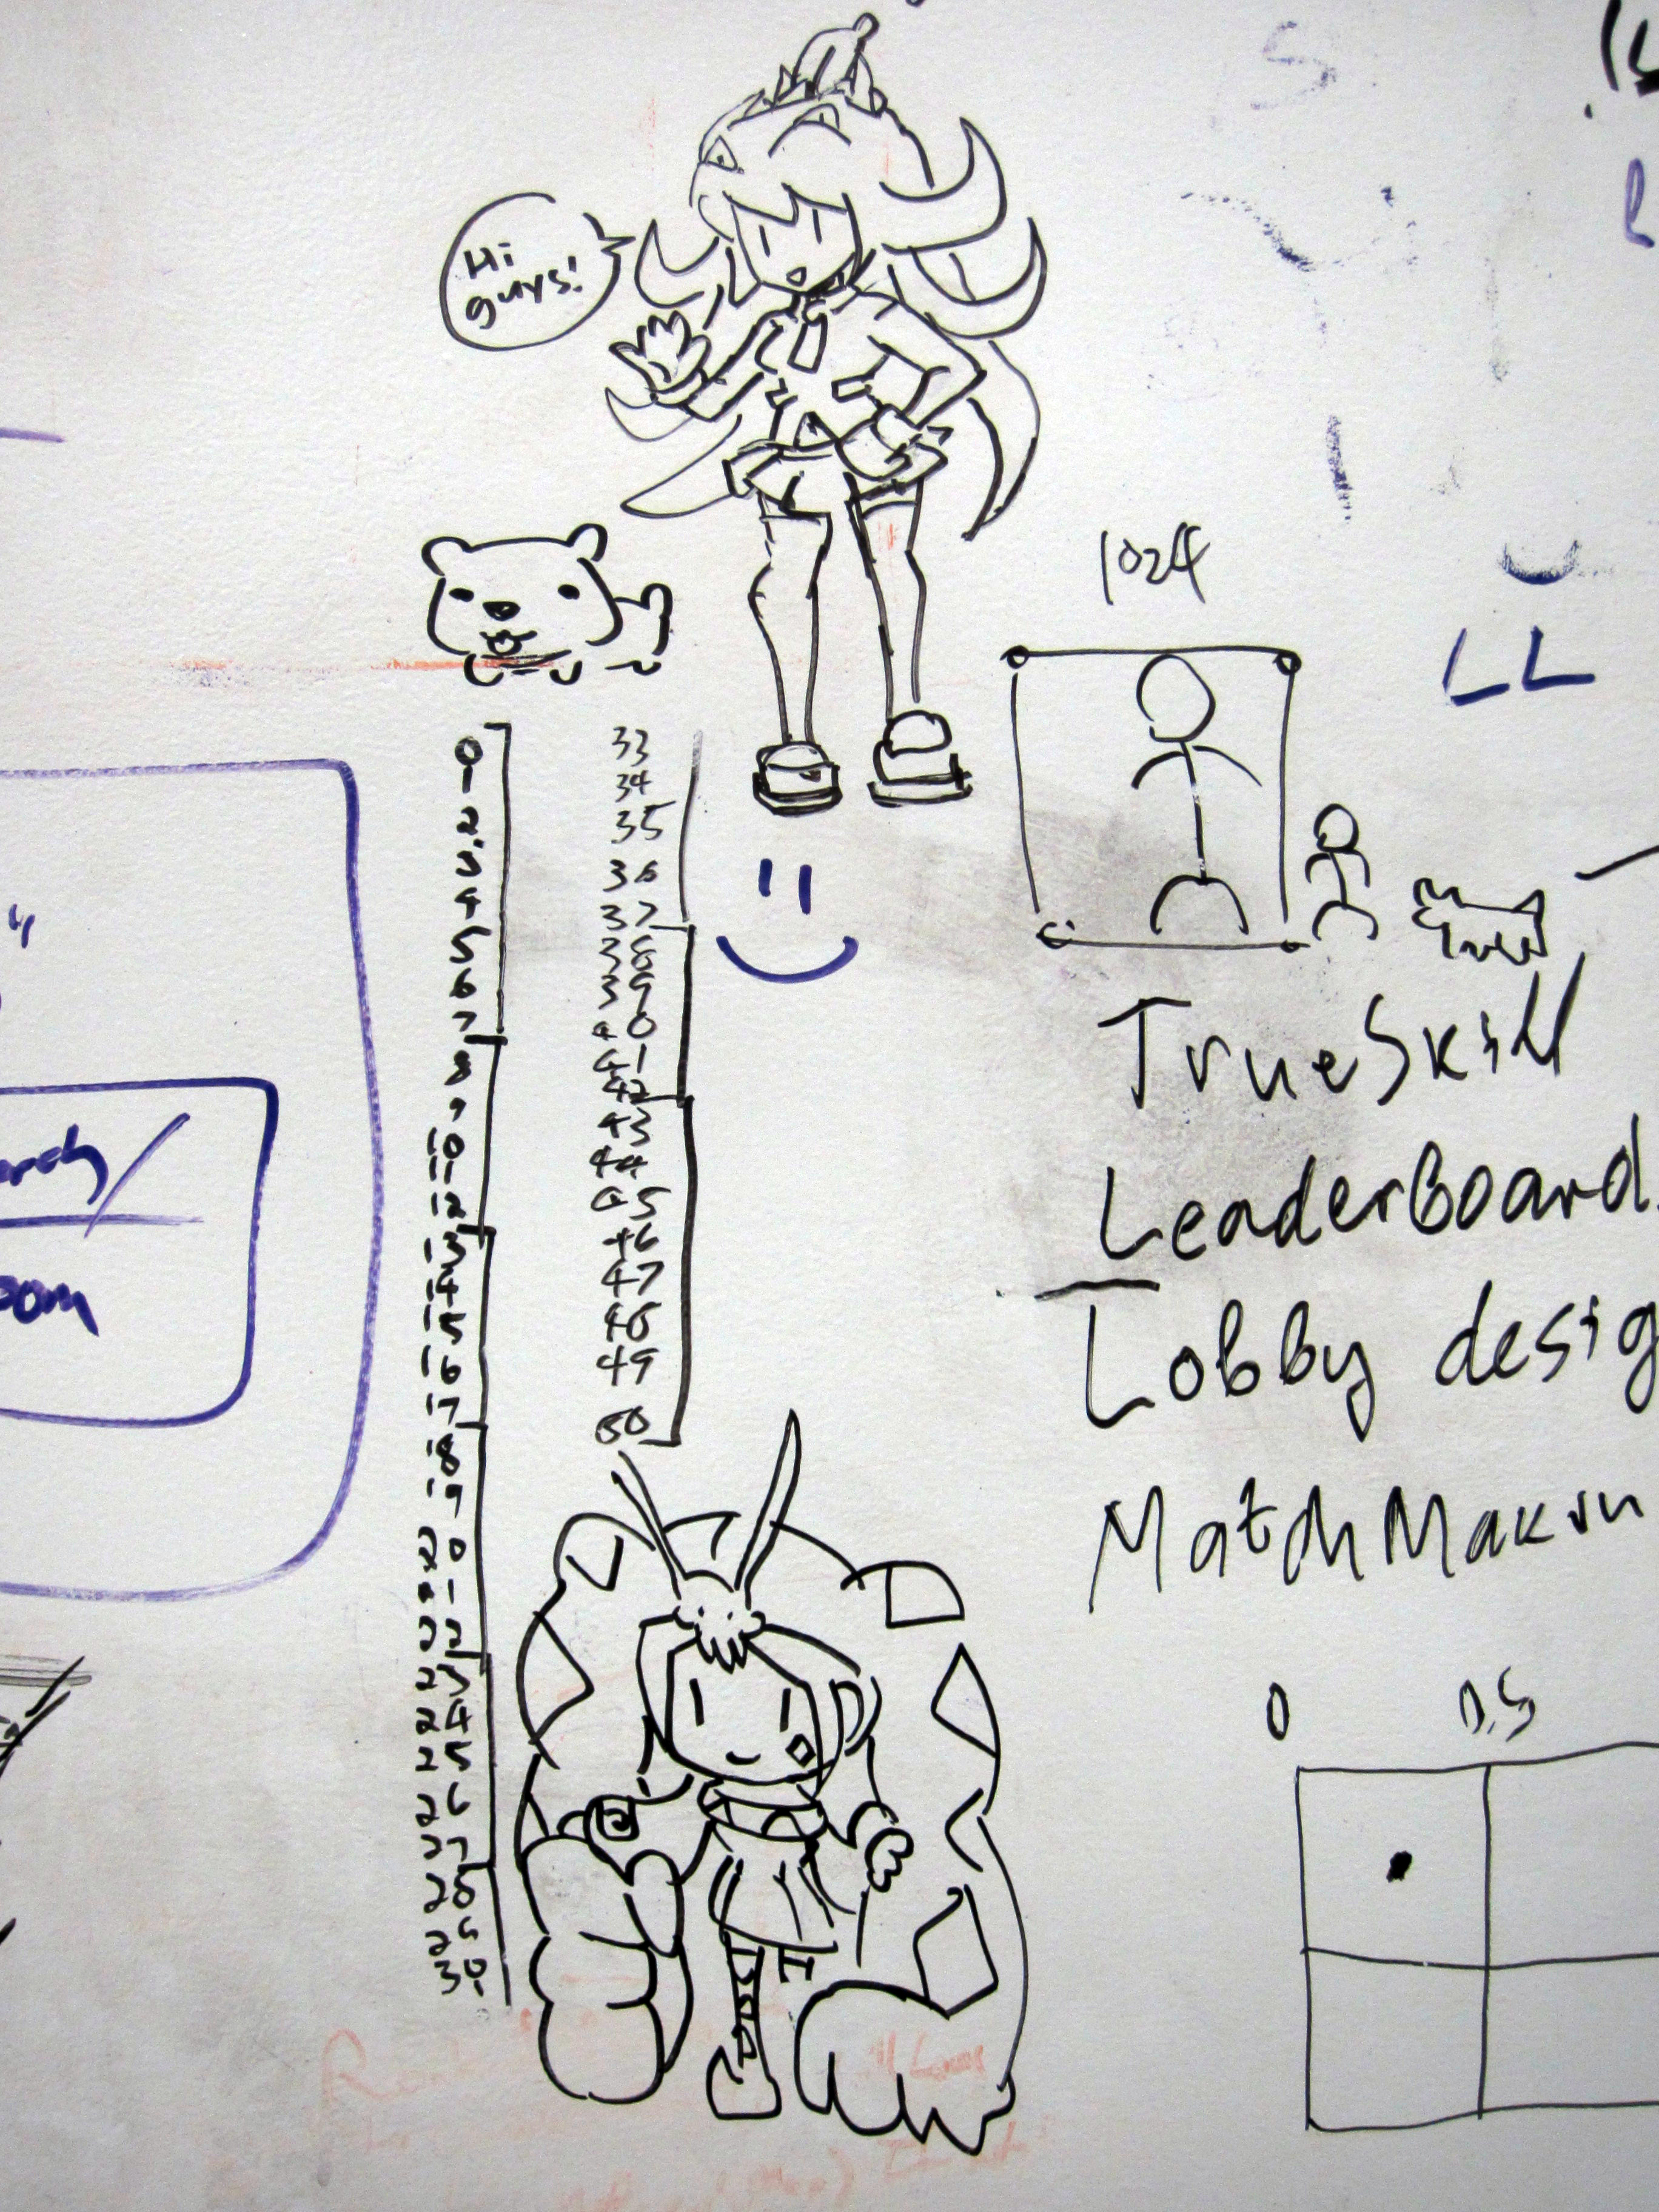 Hi
guys!
1024
LL
0
1
2
3
4
5
6
7
8
9
10
11
12
13
14
15
16
17
18
19
20
21
22
23
24
25
26
27
28
29
30
33
34
35
36
37
38
39
40
41
42
43
44
45
46
47
48
49
50
TrueSkill
LeaderBoard
Lobby desig
MatchMakin
0 0.5
oom